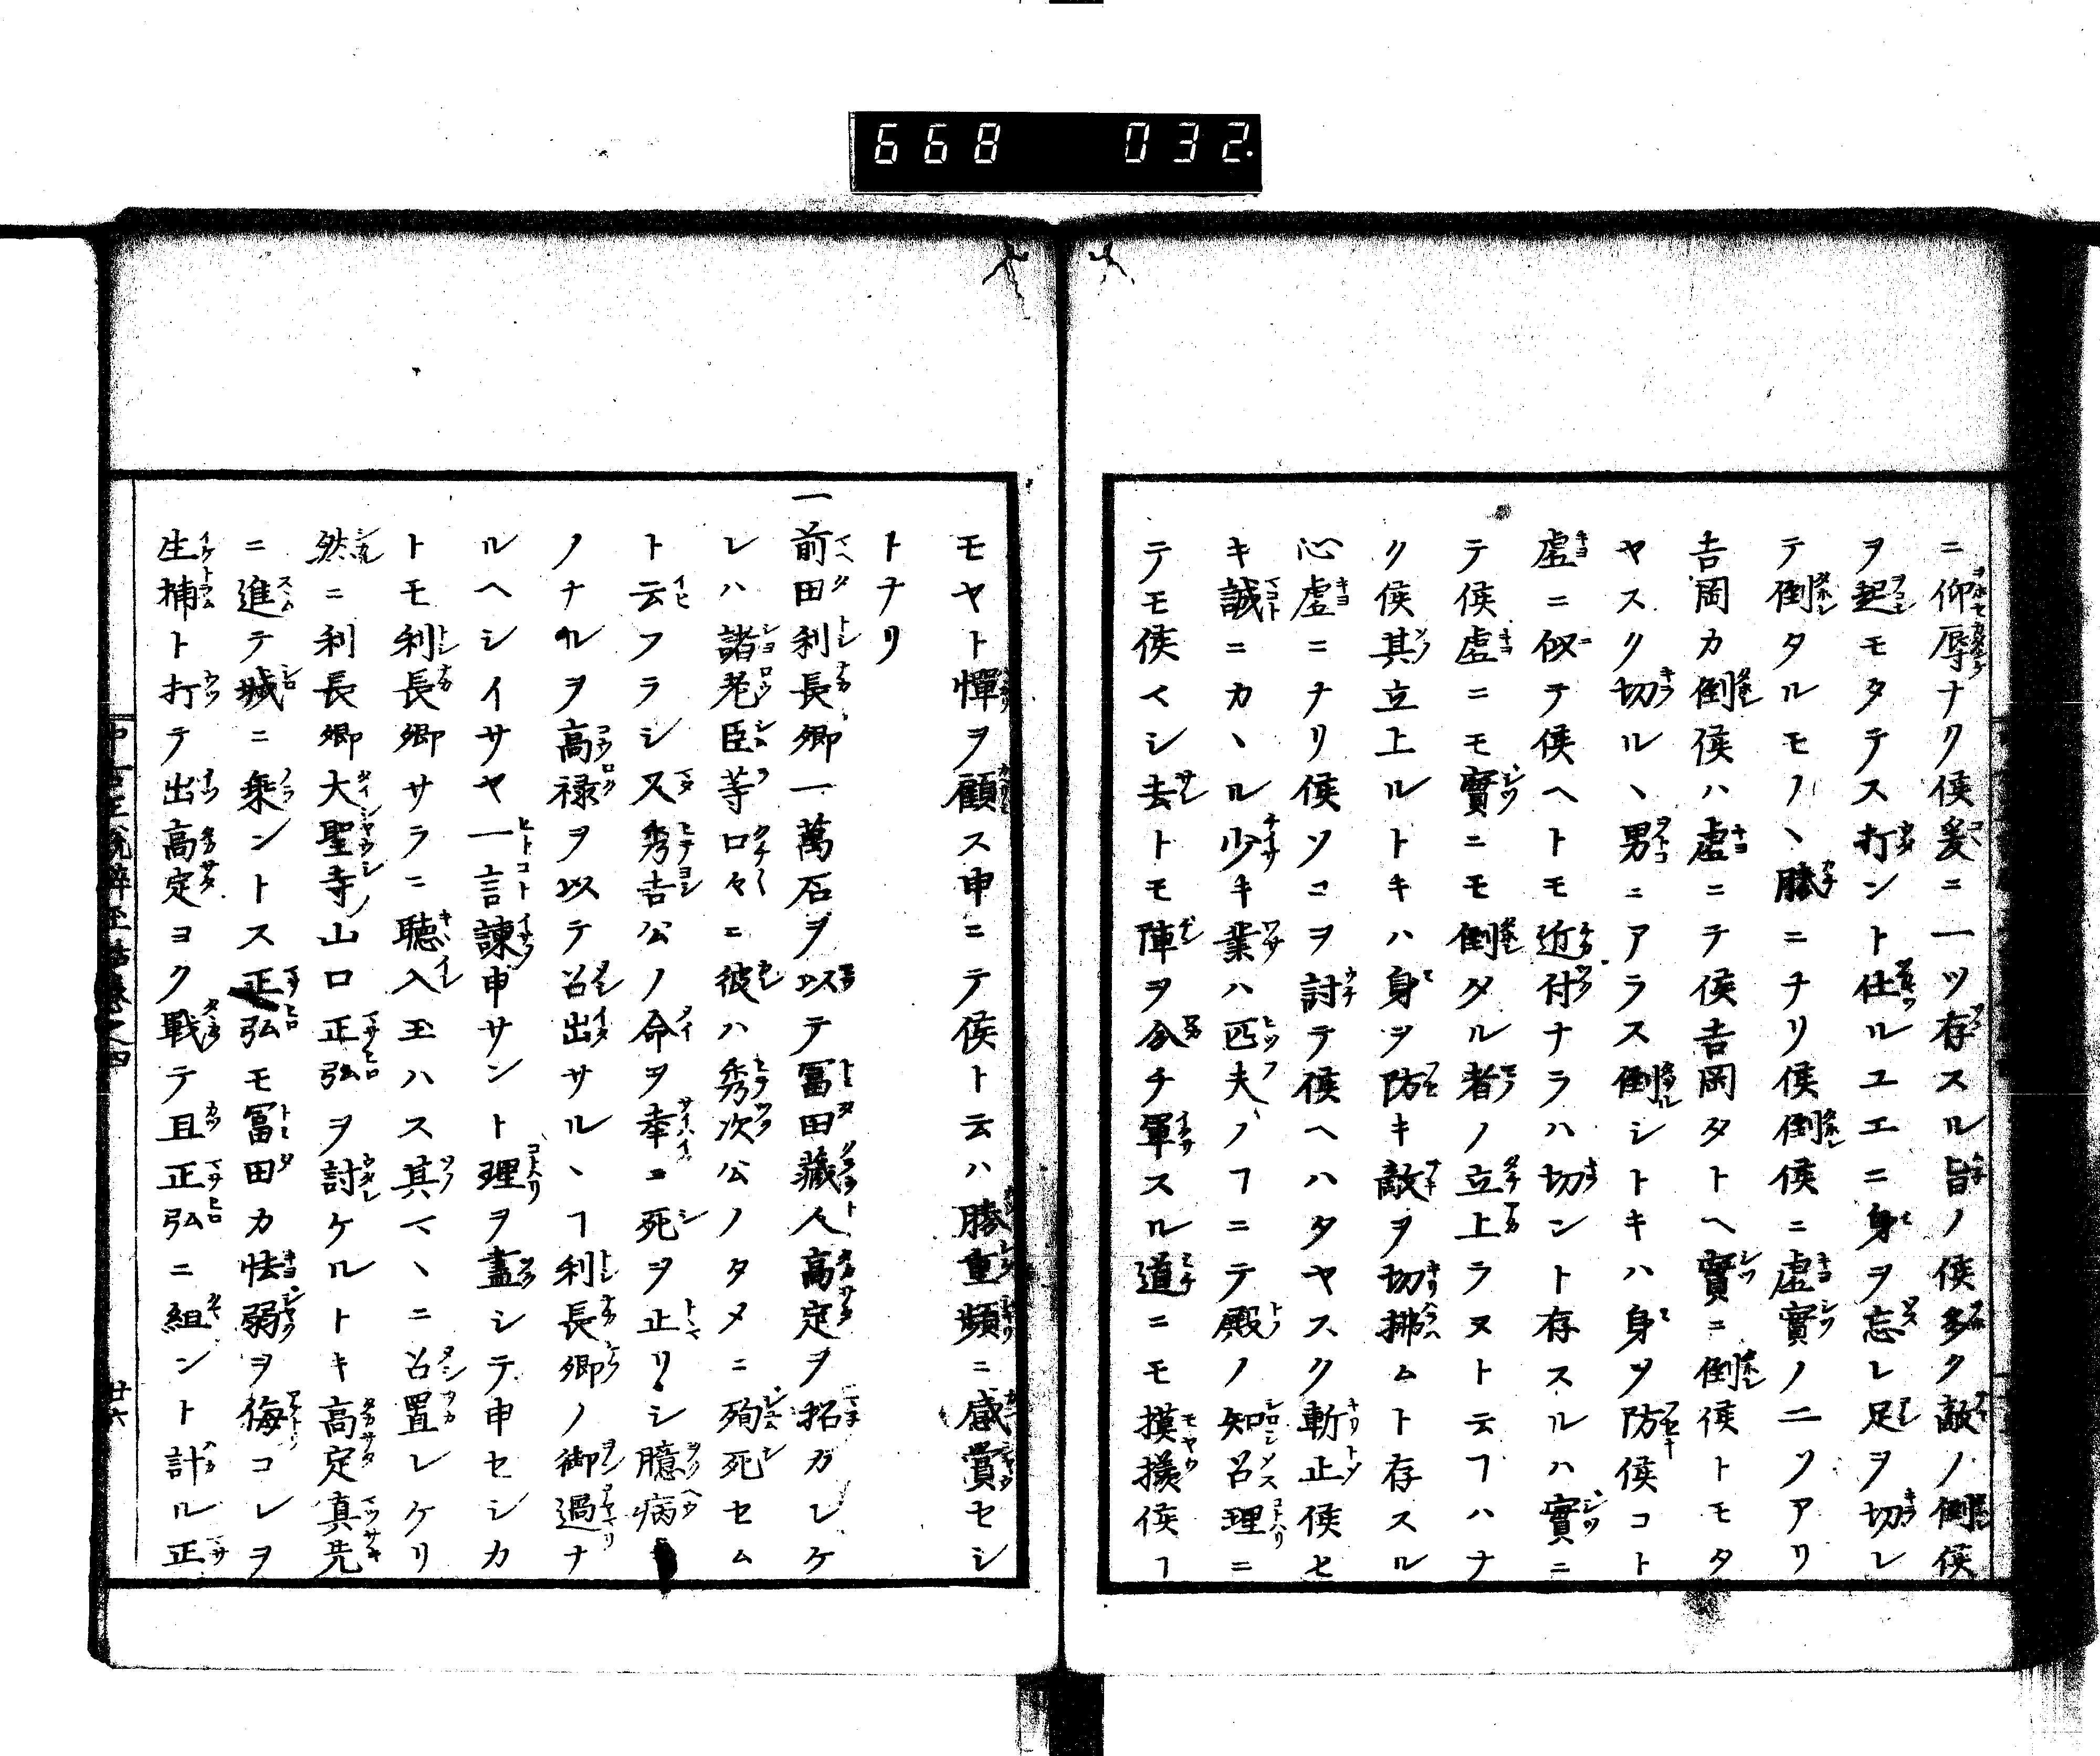 668 032.
ニ仰辱ナク侯爰ニ一ツ存スル旨ノ侯多ク敵ノ倒侯
ヲ起モタテス打ント仕ルユエニ身ヲ忘レ足ヲ切レ
テ倒タルモノヽ勝ニナリ侯倒侯ニ虚實ノ二ツアリ
吉岡カ倒侯ハ虚ニテ侯吉岡タトヘ實ニ倒侯トモタ
ヤスク切ルヽ男ニアラス倒シトキハ身ヲ防侯コト
虚ニ似テ侯ヘトモ近付ナラハ切ント存スルハ實ニ
テ侯虚ニモ實ニモ倒タル者ノ立上ラヌトテフハナ
ク侯其立上ルトキハ身ヲ防キ敵ヲ切拂ムト存スル
心虚ニナリ侯ソコヲ討テ侯ヘハタヤスク斬止侯セ
キ誠ニカヽル少キ業ハ匹夫ノヿニテ殿ノ知召理ニ
テモ侯ヘシ去トモ陣ヲ分チ軍スル道ニモ摸様侯ヿ
モヤト憚ヲ顧ス申ニテ侯ト云ハ勝重頻ニ感賞セシ
トナリ
一前田利長卿一萬石ヲ以テ冨田藏人高定ヲ招ガレケ
レハ諸老臣等口々ニ彼ハ秀次公ノタメニ殉死セム
ト云フラシ又秀吉公ノ命ヲ幸ニ死ヲ止リシ臆病
ノナルヲ高禄ヲ以テ召出サルヽヿ利長卿ノ御過ナ
ルヘシイサヤ一言諫申サント理ヲ盡シテ申セシカ
トモ利長卿サラニ聴入玉ハス其マヽニ召置レケリ
然ニ利長卿大聖寺山口正弘ヲ討ケルトキ高定真先
ニ進テ城ニ乗ントス正弘モ冨田カ怯弱ヲ侮コレヲ
生捕ト打テ出高定ヨク戰テ且正弘ニ組ント計ル正
卷之四
廿六